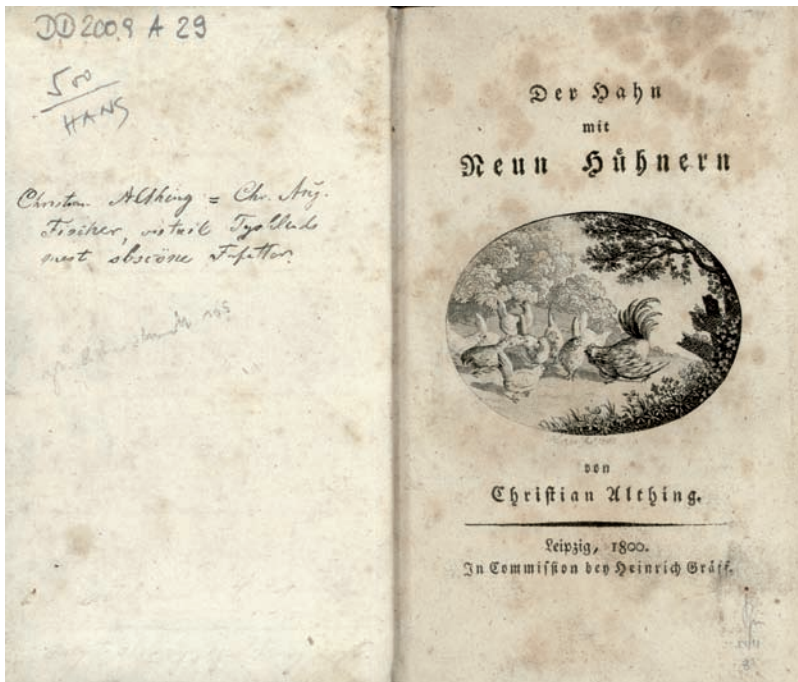 DD 2009 A 29
500
HANS
Christian Althing = Chr. Aug.
Fischer, Tysklands
mest obscöne Forfatter.
Der Hahn
mit
Neun Hühnern
von
Christian Althing.
Leipzig, 1800.
In Commission bey Heinrich Gräff.